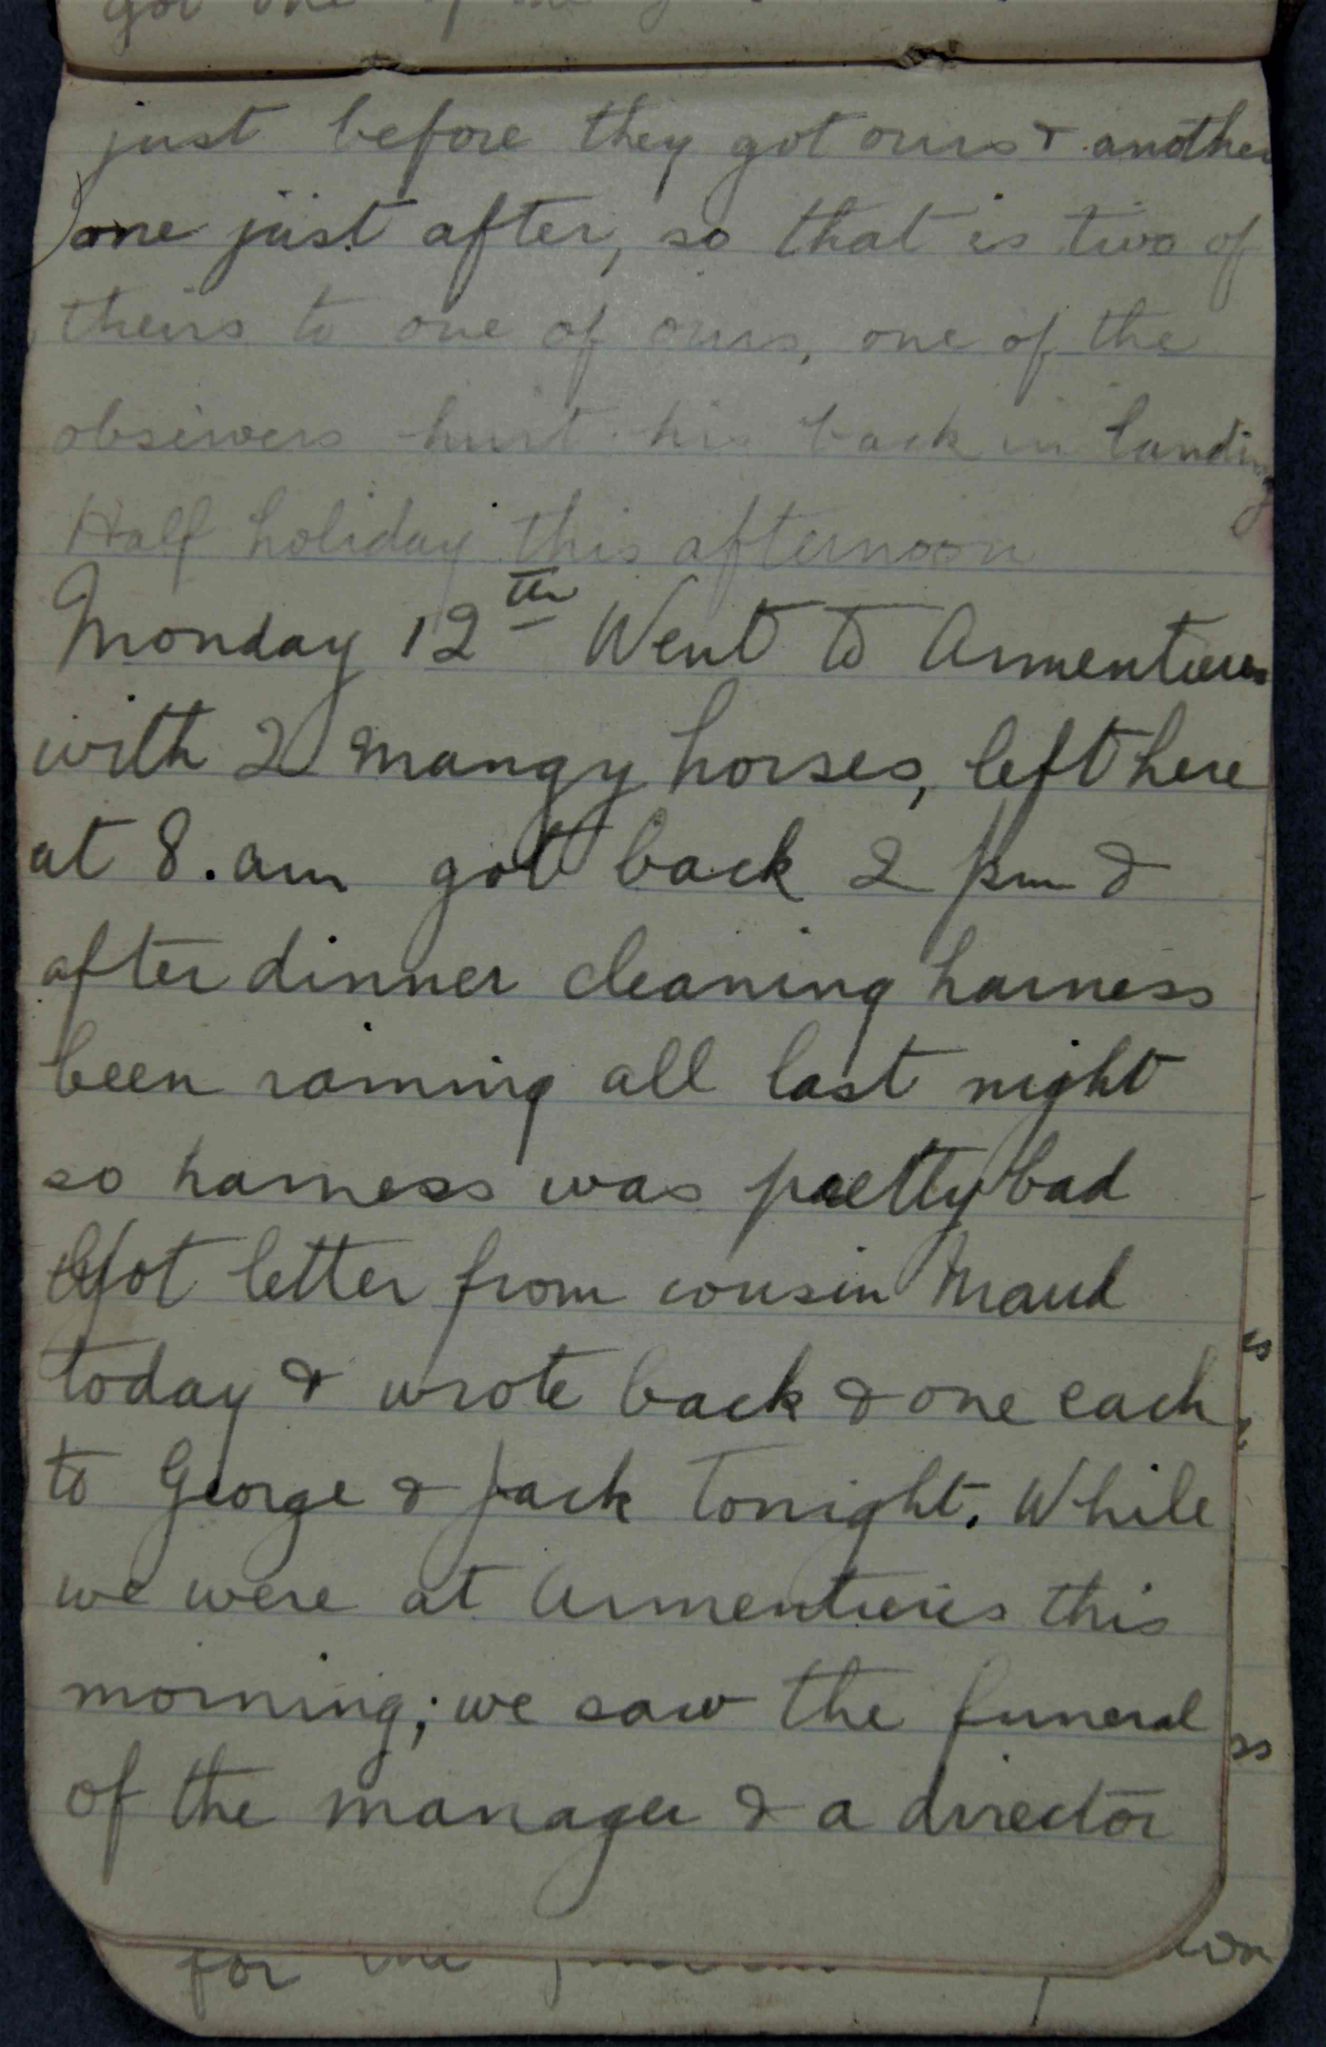 just before they got ours & another
one just after, so that is two of
theirs to one of ours, one of the
observers hurt his back in landing
Half holiday this afternoon
Monday 12th Went to Armentieres
with 2 mangy horses, left here
at 8.am got back 2 pm &
after dinner cleaning harness
been raining all last night
so harness was pretty bad
Got letter from cousin Maud
today & wrote back & one each
to George & Jack Tonight. While
we were at Armentieres this
morning; we saw the funeral
of the manager & a director
for the